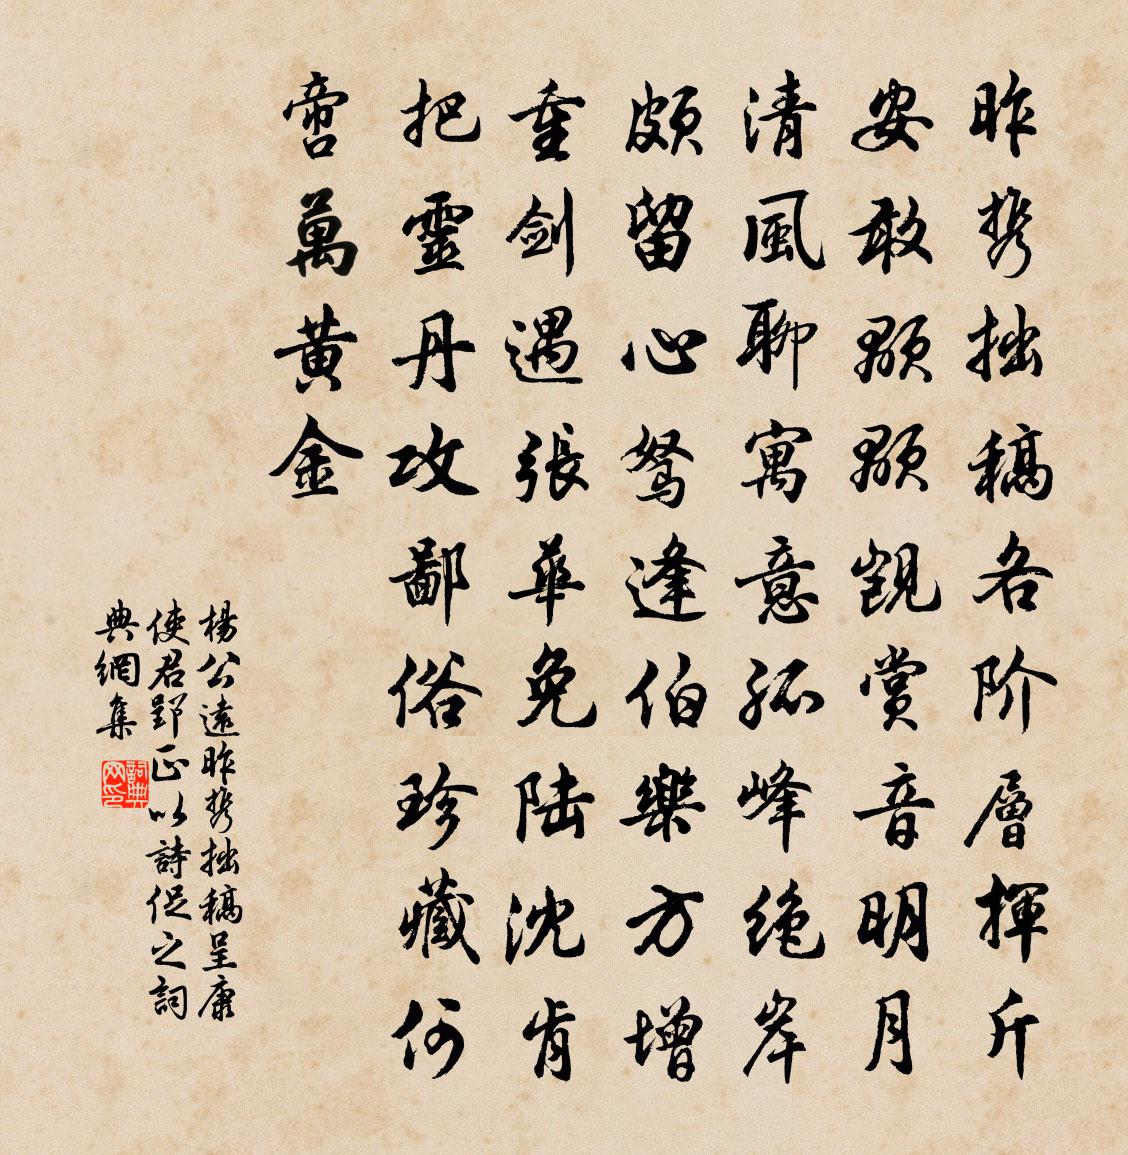 昨携拙稿各阶層揮斤
安敢顒顒覬賞音明月
清風聊寓意孤峰絶岸
頗留心駑逢伯樂方增
重剑遇張華免陆沈肯
把靈丹攻鄙俗珍藏何
啻萬黃金
楊公遠昨携拙稿呈康
使君郢正以詩促之詞
典網集
詞典
网印